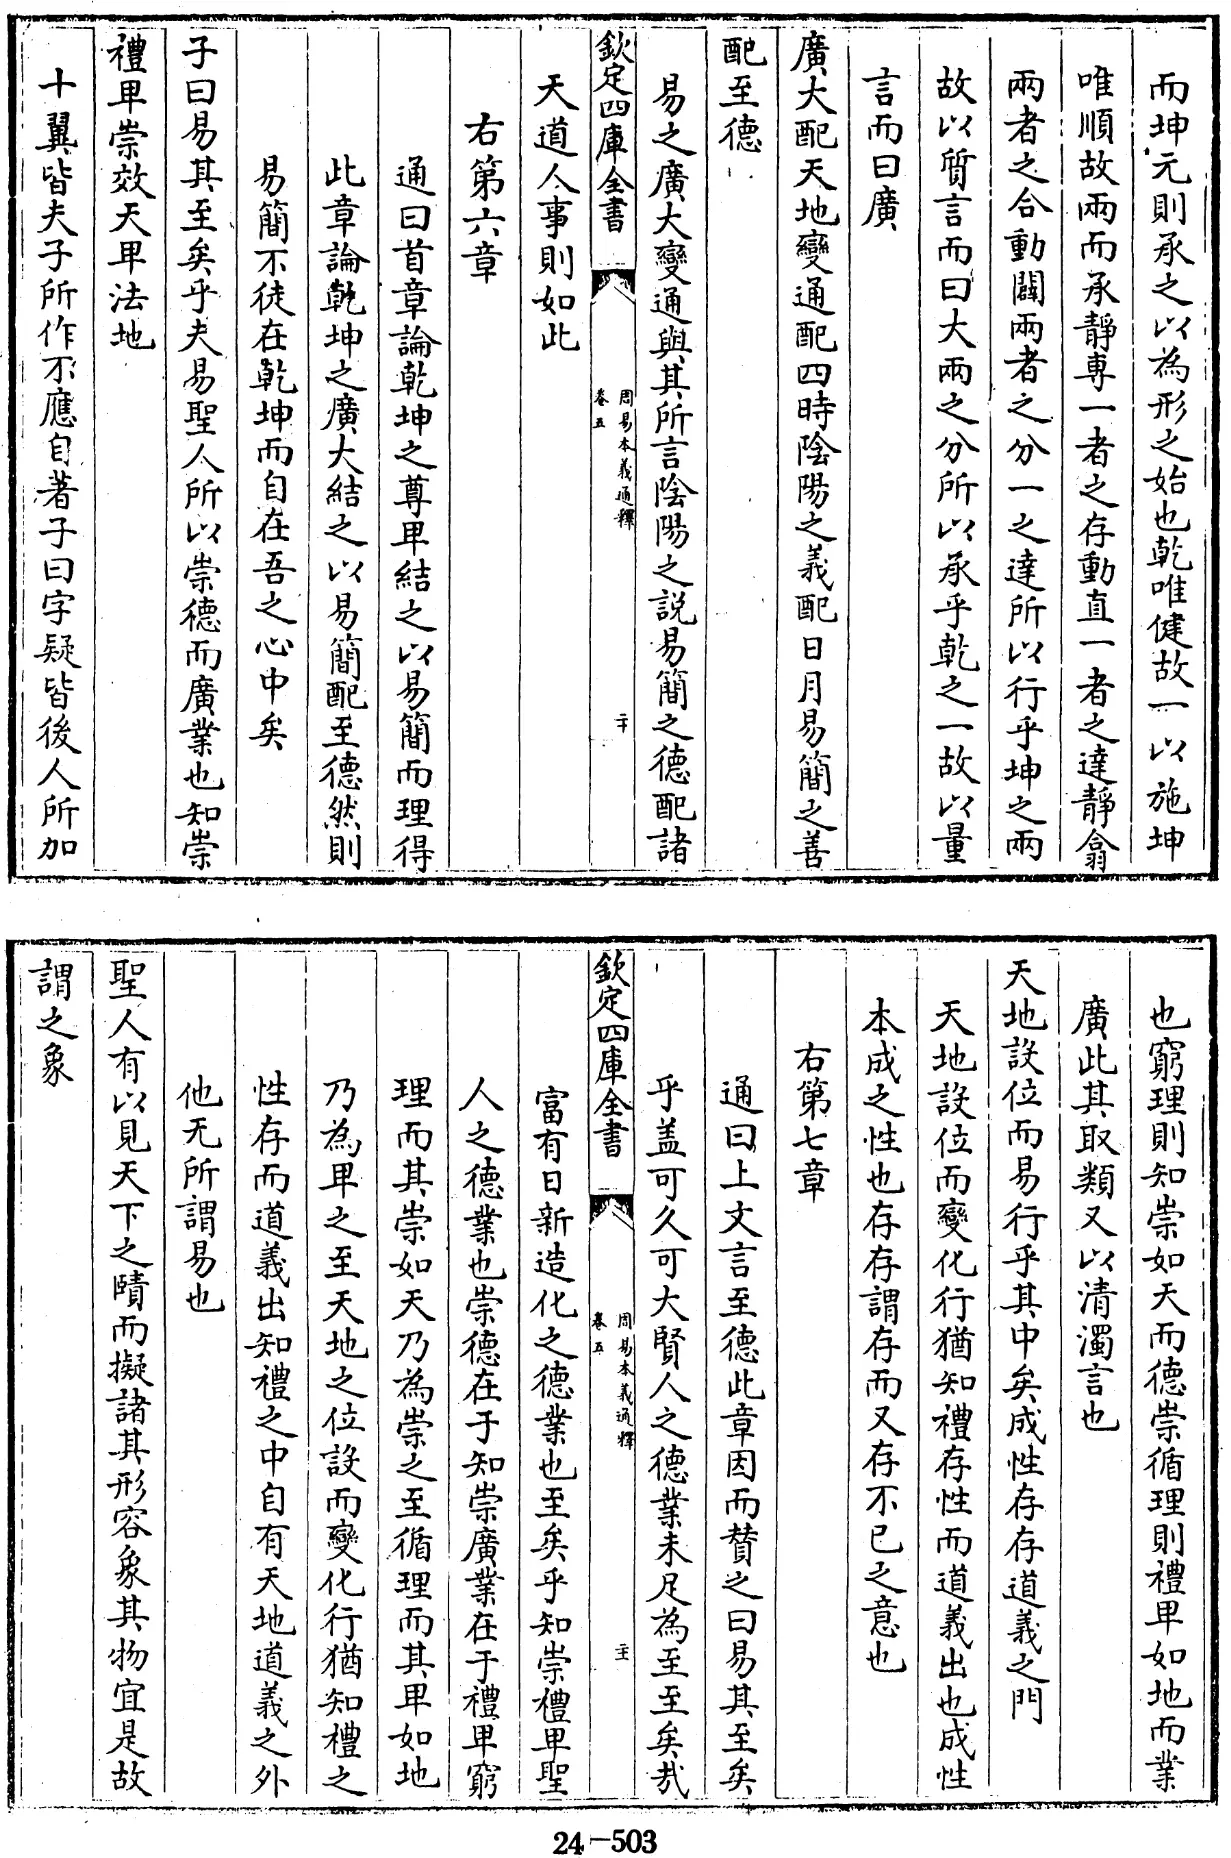 而坤元則承之以為形之始也乾唯健故一以施坤
唯順故兩而承靜専一者之存動直一者之達靜翕
兩者之合動闢兩者之分一之達所以行乎坤之兩
故以質言而曰大兩之分所以承乎乾之一故以量
言而曰廣
廣大配天地變通配四時陰陽之義配日月易簡之善
配至德
易之廣大變通與其所言陰陽之説易簡之德配諸
欽定四庫全書
周易本義通釋
卷五
二十
天道人事則如此
右第六章
通曰首章論乾坤之尊卑結之以易簡而理得
此章論乾坤之廣大結之以易簡配至德然則
易簡不徒在乾坤而自在吾之心中矣
子曰易其至矣乎夫易聖人所以崇德而廣業也知崇
禮卑崇效天卑法地
十翼皆夫子所作不應自著子曰字疑皆後人所加
也窮理則知崇如天而德崇循理則禮卑如地而業
廣此其取類又以清濁言也
天地設位而易行乎其中矣成性存存道義之門
天地設位而變化行猶知禮存性而道義出也成性
本成之性也存存謂存而又存不已之意也
右第七章
通曰上文言至德此章因而賛之曰易其至矣
乎盖可久可大賢人之德業未足為至至矣哉
欽定四庫全書
周易本義通釋
卷五
二十一
富有日新造化之德業也至矣乎知崇禮卑聖
人之德業也崇德在于知崇廣業在于禮卑窮
理而其崇如天乃為崇之至循理而其卑如地
乃為卑之至天地之位設而變化行猶知禮之
性存而道義出知禮之中自有天地道義之外
他无所謂易也
聖人有以見天下之賾而擬諸其形容象其物宜是故
謂之象
24-503